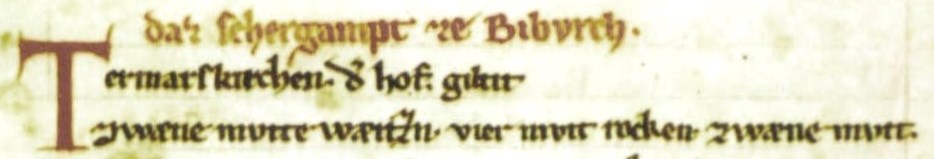 daz schergampt ze Biburch.
Termarskirchen. d hof. giltit
zwæne mutte wæitzn. vier mutt rocken. zwæne mutt.